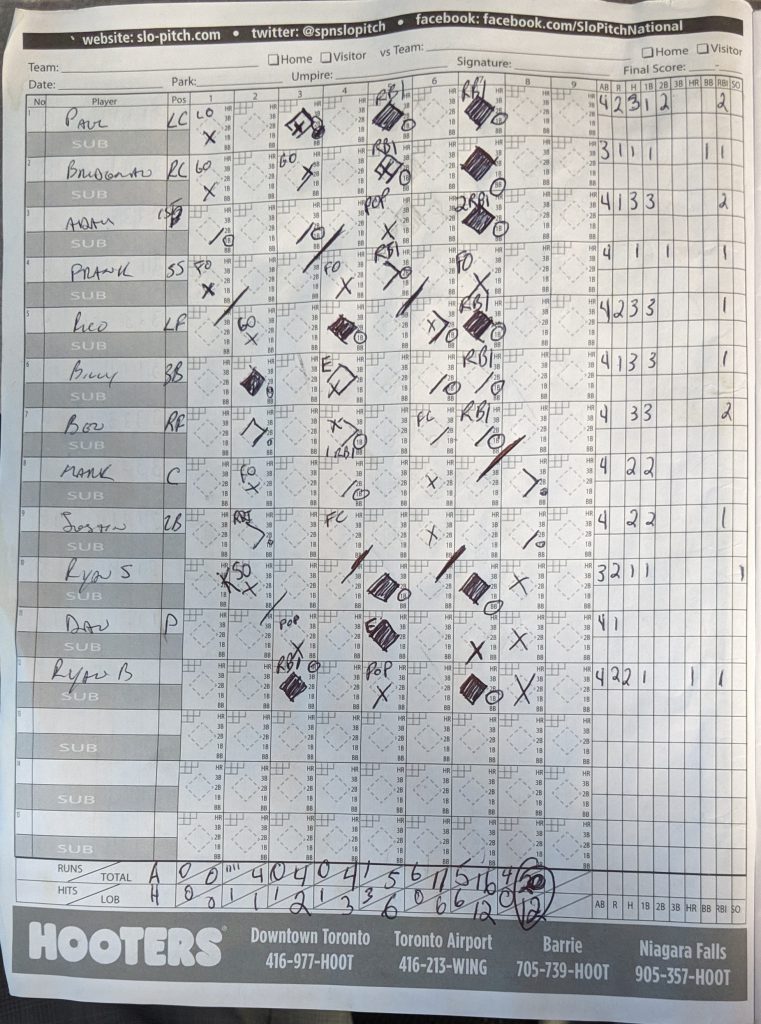 website: slo-pitch.com • twitter: @spnslopitch • facebook: facebook.com/SloPitchNational
Team: Home Visitor vs Team: Home Visitor
Date: Park: Umpire: Signature: Final Score:
No Player Pos 1 2 3 4 6 8 9 AB R H 1B 2B 3B HR BB RBI SO
1 PAUL LC LO RBI RBI 4 2 3 1 2 2
SUB
2 RC GO GO RBI 3 1 1 1 1 1
SUB
3 ADAM POP 2RBI 4 1 3 3 2
SUB
4 FRANK SS FO FO RBI FO 4 1 1 1
SUB
5 RICO LF GO RBI 4 2 3 3 1
SUB
6 BILLY 3B E RBI 4 1 3 3 1
SUB
7 RF 1 RBI FC RBI 4 3 3 2
SUB
8 MARK C FO 4 2 2
SUB
9 2B RBI FC 4 2 2 1
SUB
10 RYAN S SO 3 2 1 1 1
SUB
11 DAN P POP E 4 1
SUB
12 RYAN B RBI POP 4 2 2 1 1 1
SUB
13
SUB
14
SUB
15
SUB
RUNS TOTAL A 0 0 4 0 4 0 4 1 5 6 11 5 16 4 20
HITS LOB H 0 0 1 1 1 2 1 3 3 6 0 6 6 12 0 12
AB R H 1B 2B 3B HR BB RBI SO
HOOTERS
Downtown Toronto Toronto Airport Barrie Niagara Falls
416-977-HOOT 416-213-WING 705-739-HOOT 905-357-HOOT